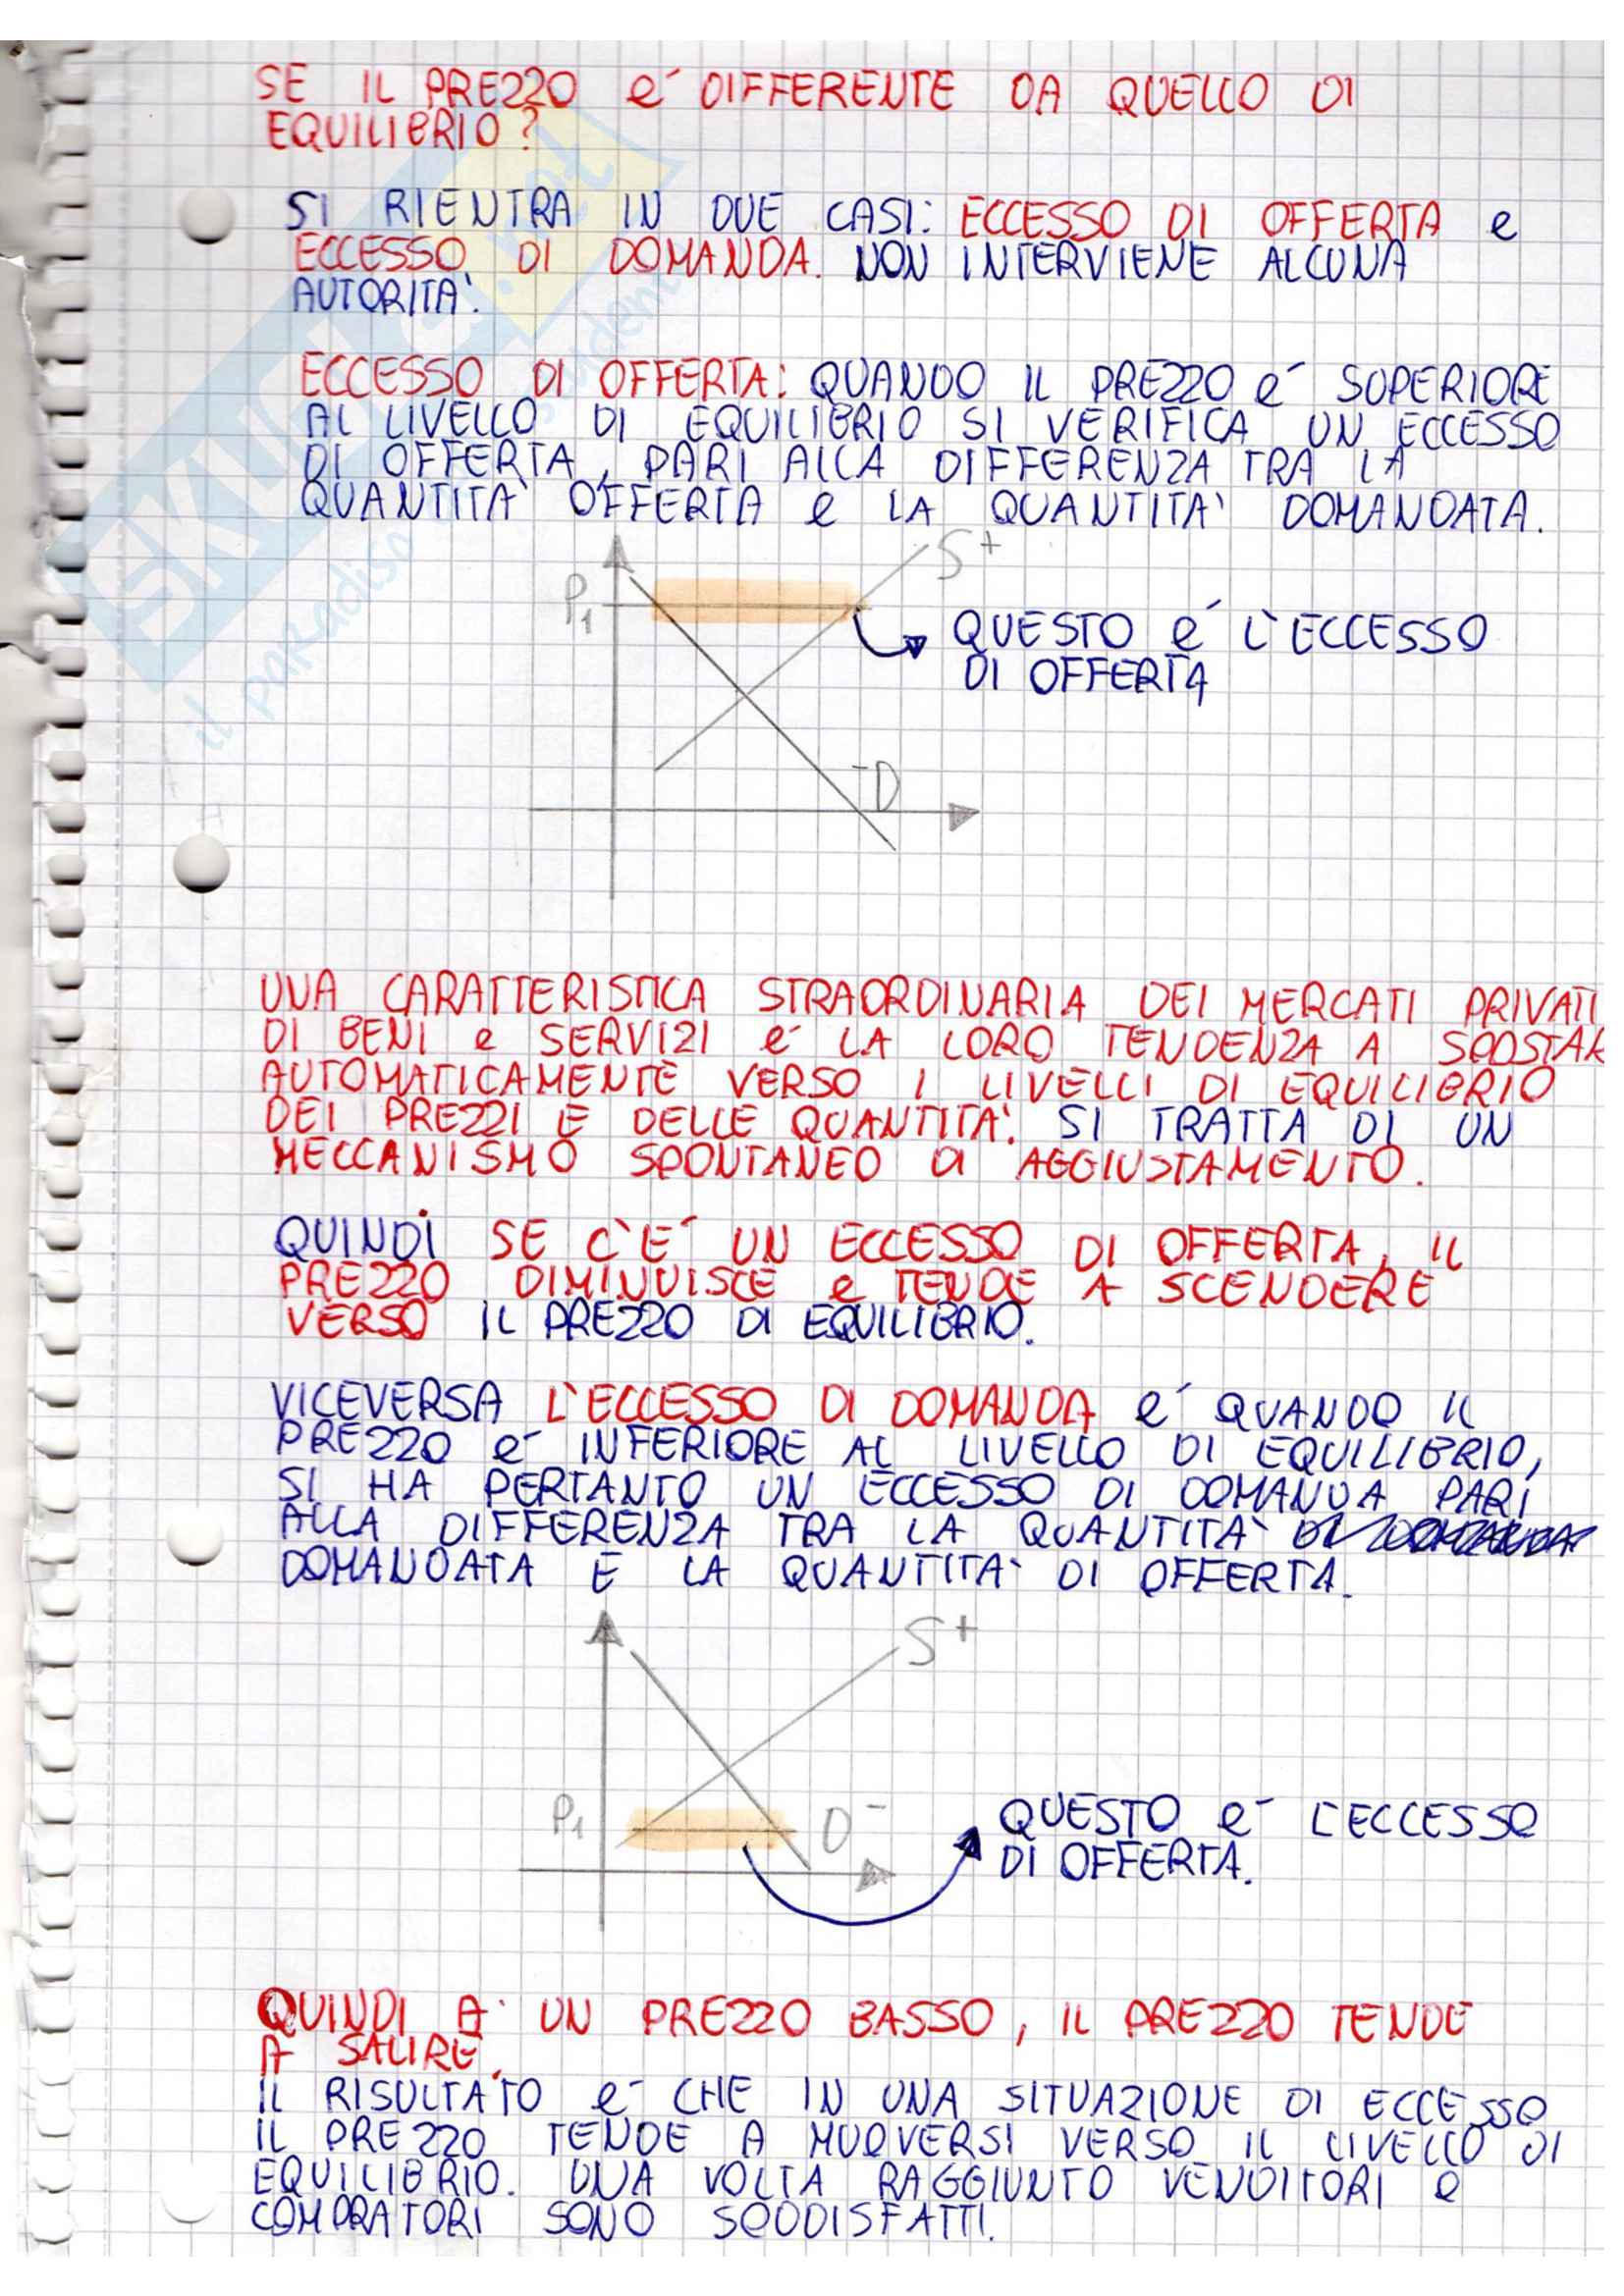 SE IL PREZZO e´ DIFFERENTE DA QUELLO DI
EQUILIBRIO?
SI RIENTRA IN DUE CASI: ECCESSO DI OFFERTA e
ECCESSO DI DOMANDA. NON INTERVIENE ALCUNA
AUTORITA'.
ECCESSO DI OFFERTA: QUANDO IL PREZZO e´ SUPERIORE
AL LIVELLO DI EQUILIBRIO SI VERIFICA UN ECCESSO
DI OFFERTA, PARI ALLA DIFFERENZA TRA LA
QUANTITA' OFFERTA e LA QUANTITA' DOMANDATA.
S+
P1
QUESTO e´ L'ECCESSO
DI OFFERTA
-D
UNA CARATTERISTICA STRAORDINARIA DEI MERCATI PRIVATI
DI BENI e SERVIZI e´ LA LORO TENDENZA A SPOSTAR
AUTOMATICAMENTE VERSO I LIVELLI DI EQUILIBRIO
DEI PREZZI E DELLE QUANTITA'. SI TRATTA DI UN
MECCANISMO SPONTANEO DI AGGIUSTAMENTO.
QUINDI SE C'E´ UN ECCESSO DI OFFERTA, IL
PREZZO DIMINUISCE e TENDE A SCENDERE
VERSO IL PREZZO DI EQUILIBRIO.
VICEVERSA L'ECCESSO DI DOMANDA e´ QUANDO IL
PREZZO e´ INFERIORE AL LIVELLO DI EQUILIBRIO,
SI HA PERTANTO UN ECCESSO DI DOMANDA PARI
ALLA DIFFERENZA TRA LA QUANTITA'
DOMANDATA E LA QUANTITA' DI OFFERTA.
S+
P1
D-
QUESTO e´ L'ECCESSO
DI OFFERTA.
QUINDI A UN PREZZO BASSO, IL PREZZO TENDE
A SALIRE.
IL RISULTATO e´ CHE IN UNA SITUAZIONE DI ECCESSO
IL PREZZO TENDE A MUOVERSI VERSO IL LIVELLO DI
EQUILIBRIO. UNA VOLTA RAGGIUNTO VENDITORI e
COMPRATORI SONO SODDISFATTI.
SKUOLA.net
il paradiso